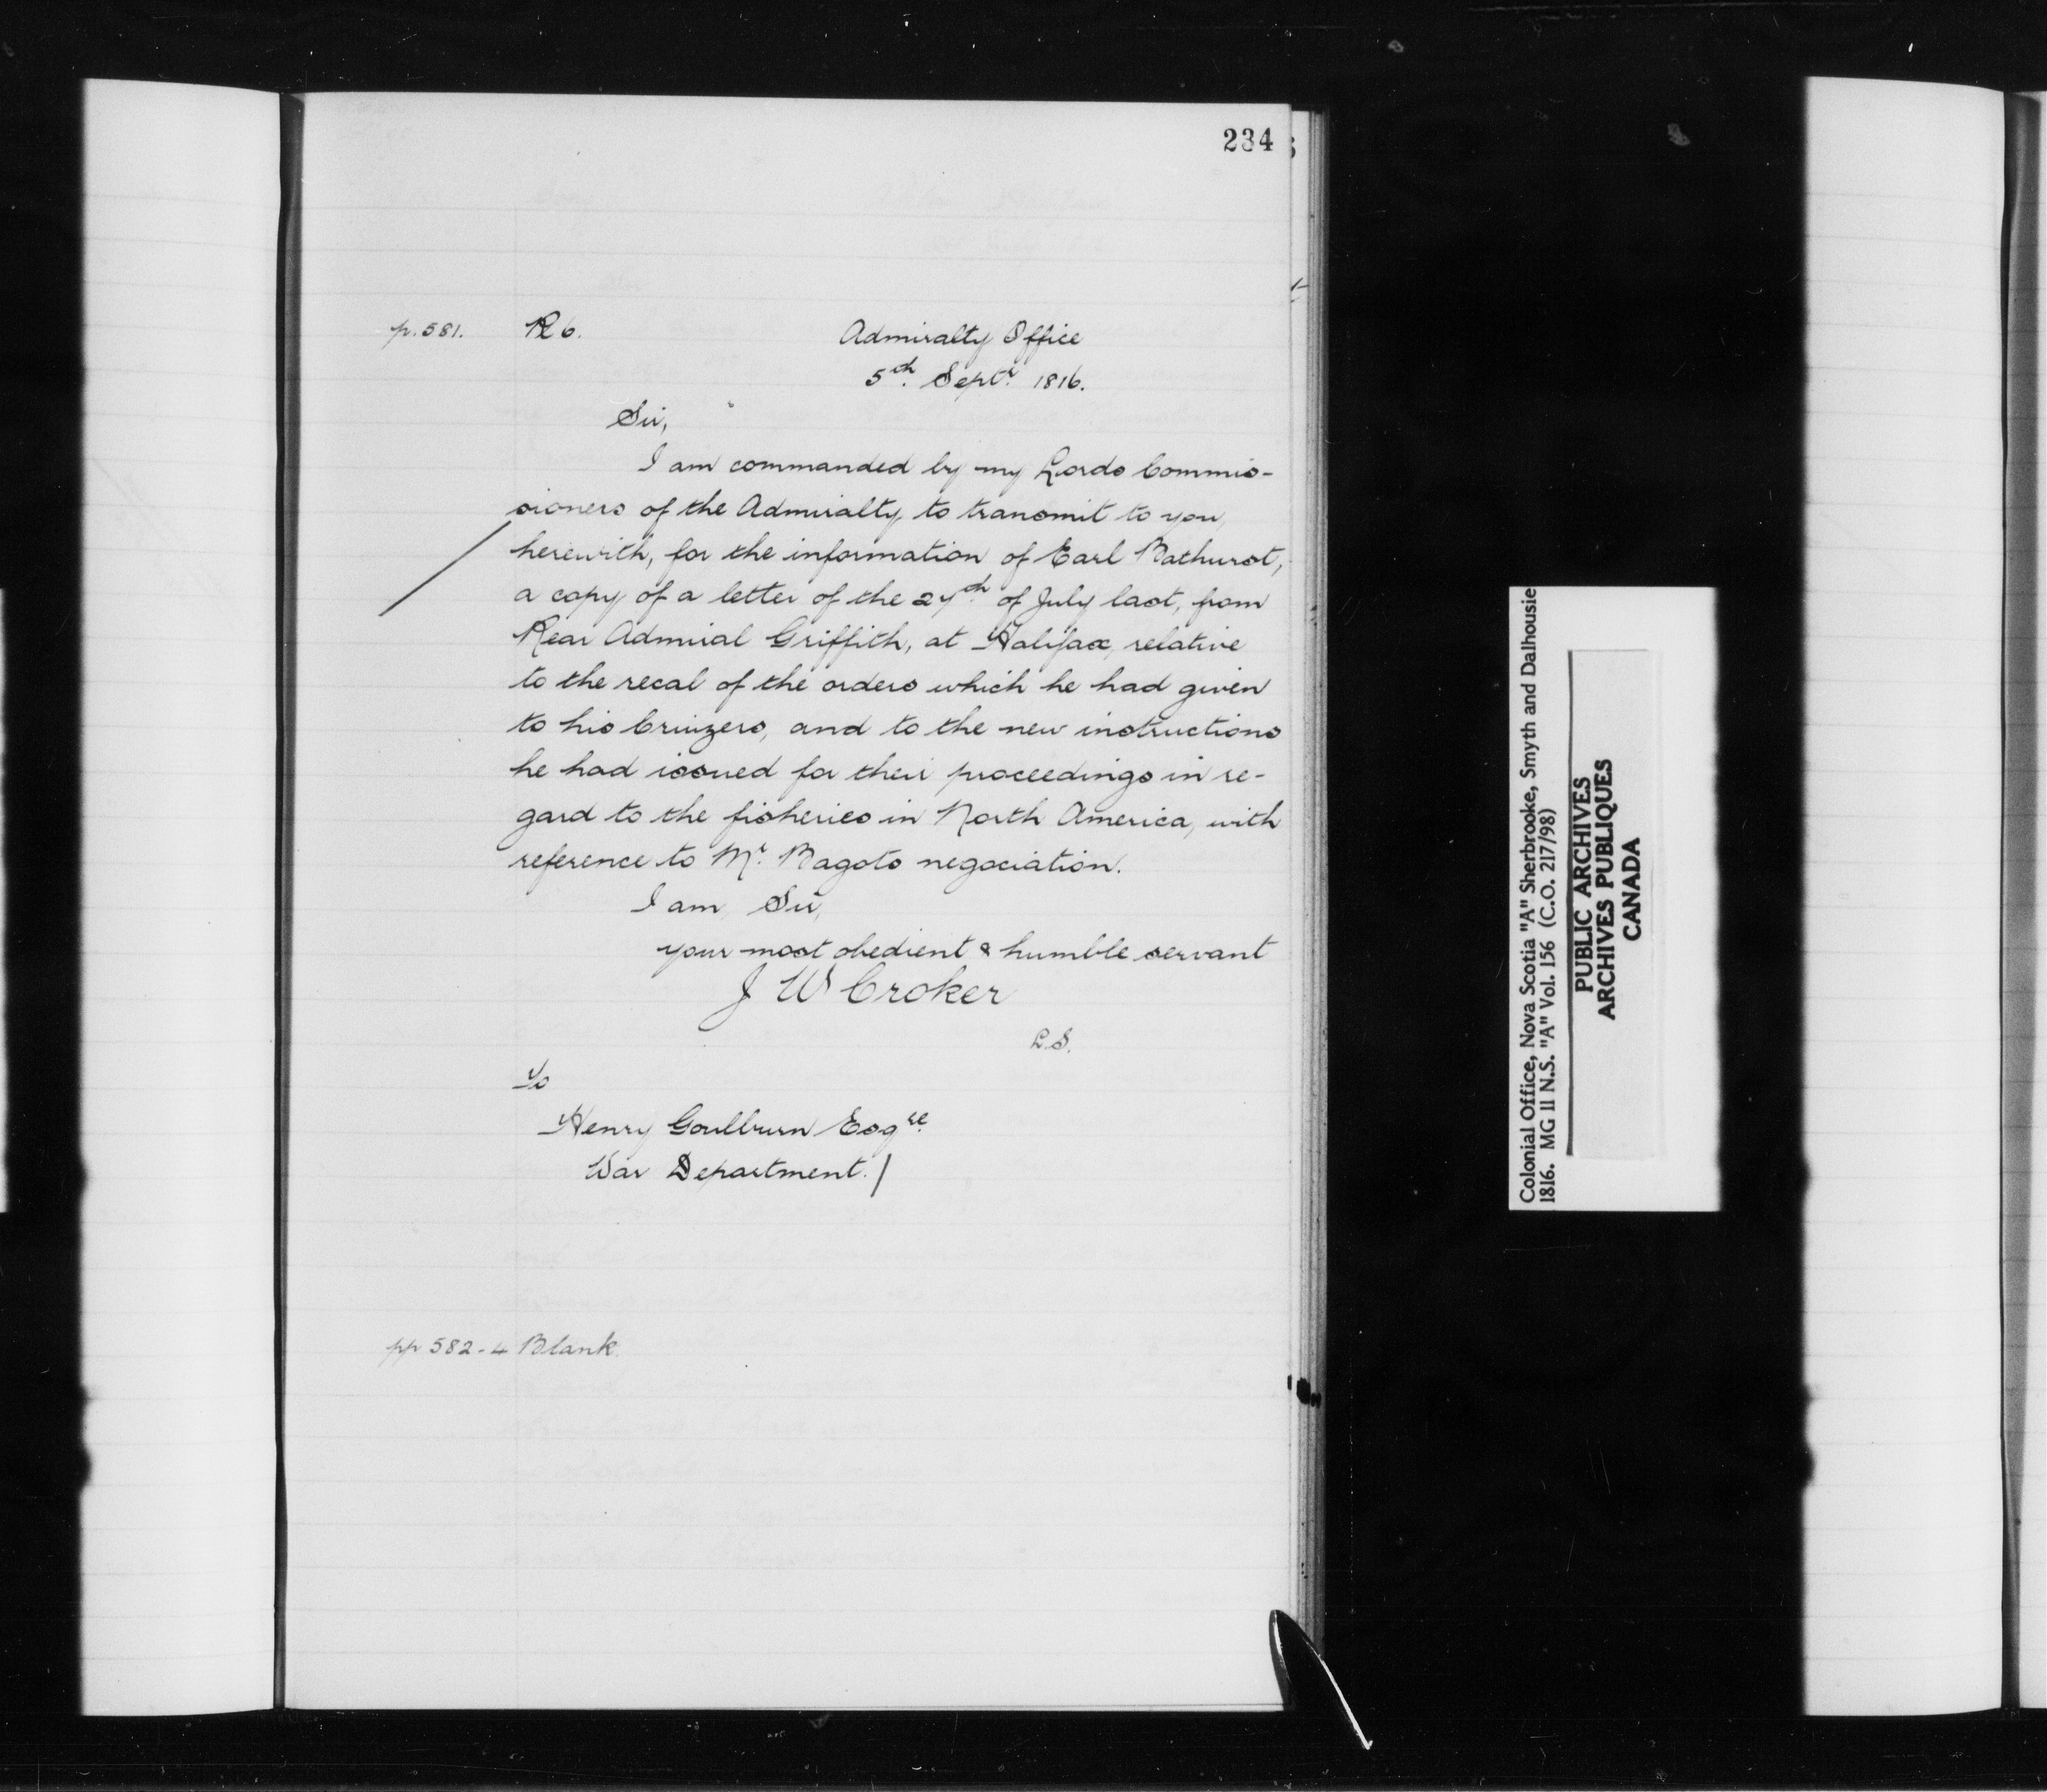 234
p. 581. R 6. Admiralty Office
5th. Septr. 1816.
Sir,
I am commanded by my Lords Commis-
sioners of the Admiralty to transmit to you,
herewith, for the information of Earl Bathurst,
a copy of a letter of the 27th. of July last, from
Rear Admiral Griffith, at Halifax, relative
to the recal of the orders which he had given
to his Cruizers, and to the new instructions
he had issued for their proceedings in re-
gard to the fisheries in North America, with
reference to Mr. Bagots negociation.
I am, Sir,
your most obedient & humble servant
J W Croker
L.S.
To
Henry Goulburn Esqre.
War Department./
pp 582-4 Blank.
Colonial Office, Nova Scotia "A" Sherbrooke, Smyth and Dalhousie
1816. MG 11 N.S. "A" Vol. 156 (C.O. 217/98)
PUBLIC ARCHIVES
ARCHIVES PUBLIQUES
CANADA